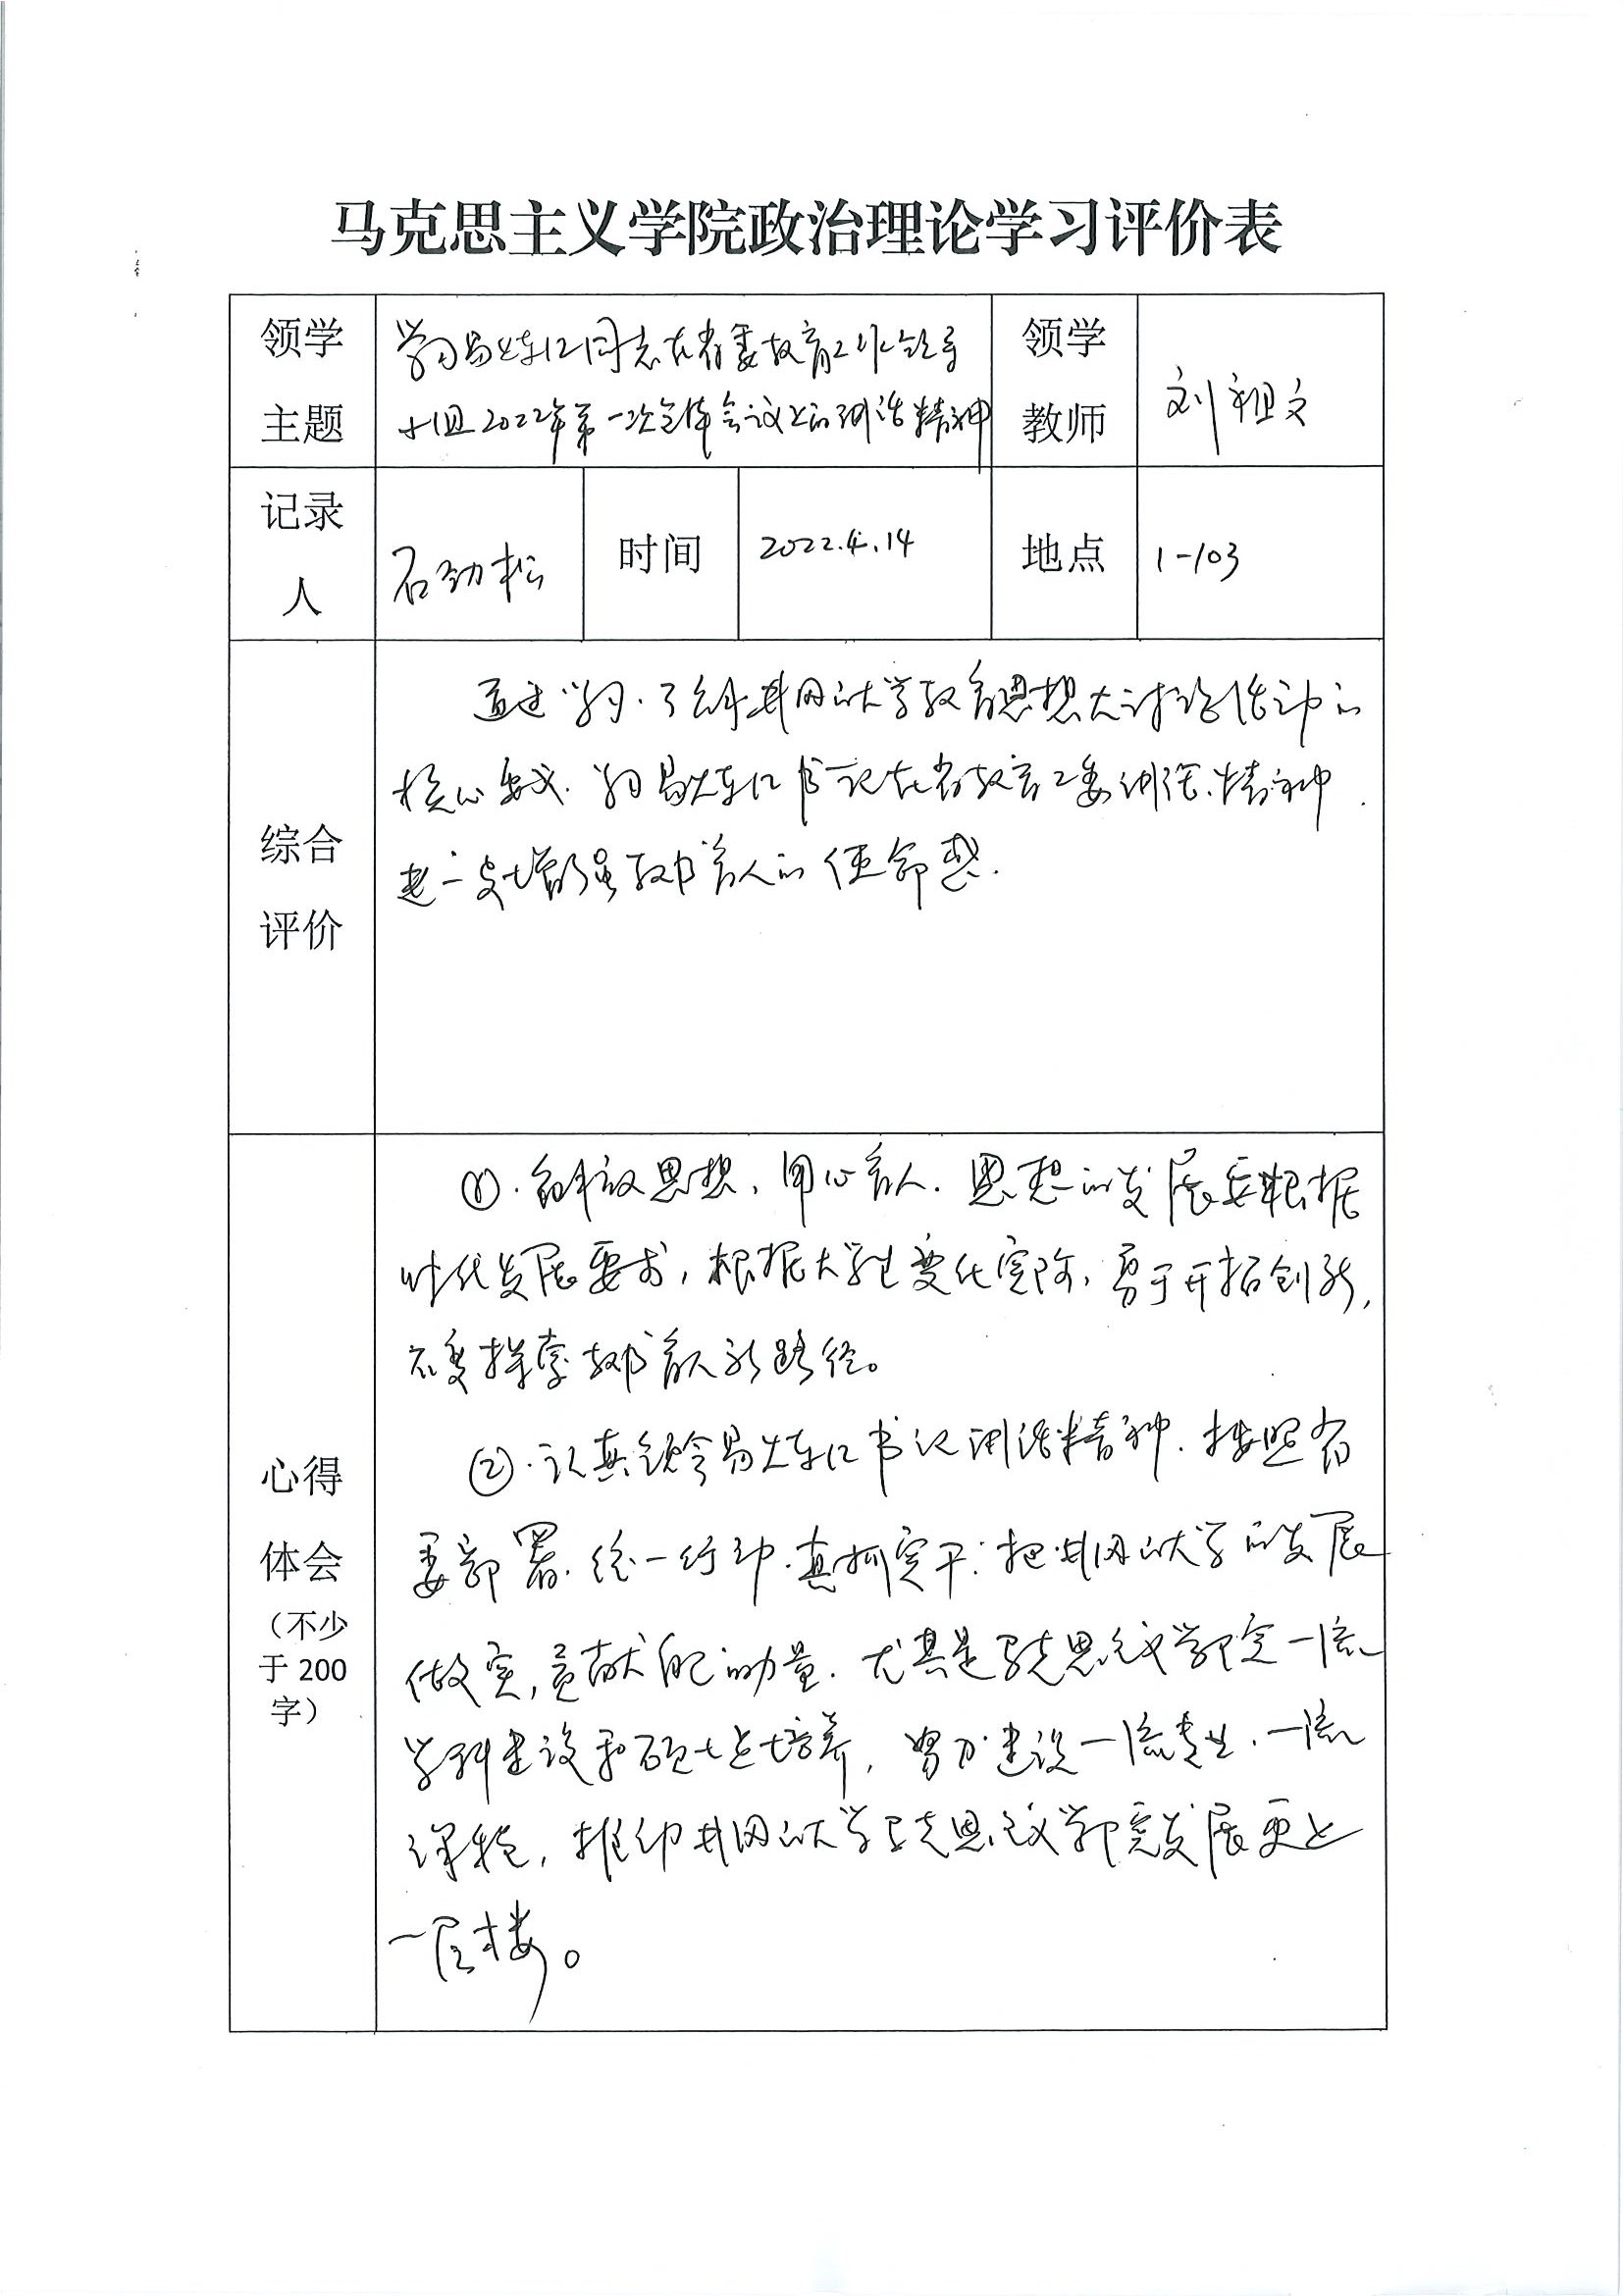 马克思主义学院政治理论学习评价表
领学
主题
学习易炼红同志在省委教育工作领导
小组2022年第一次全体会议上的讲话精神
领学
教师
刘祖文
记录
人
石劲松
时间
2022.4.14
地点
1-103
综合
评价
通过学习.了解井冈山大学教育思想大讨论活动的
核心要求.学习易炼红书记在省教育工委讲话精神.
进一步增强教书育人的使命感.
心得
体会
(不少
于200
字)
①.解放思想,用心育人.思想的发展要根据
时代发展要求,根据大学生变化实际,勇于开拓创新,
不变探索教书育人新路径。
②.认真领会易炼红书记讲话精神.按照省
委部署.统一行动.真抓实干;把井冈山大学的发展
做实,贡献自己的力量.尤其是马克思主义学院一流
学科建设和硕士点培养,努力建设一流专业.一流
课程,推动井冈山大学马克思主义学院发展更上
一层楼。